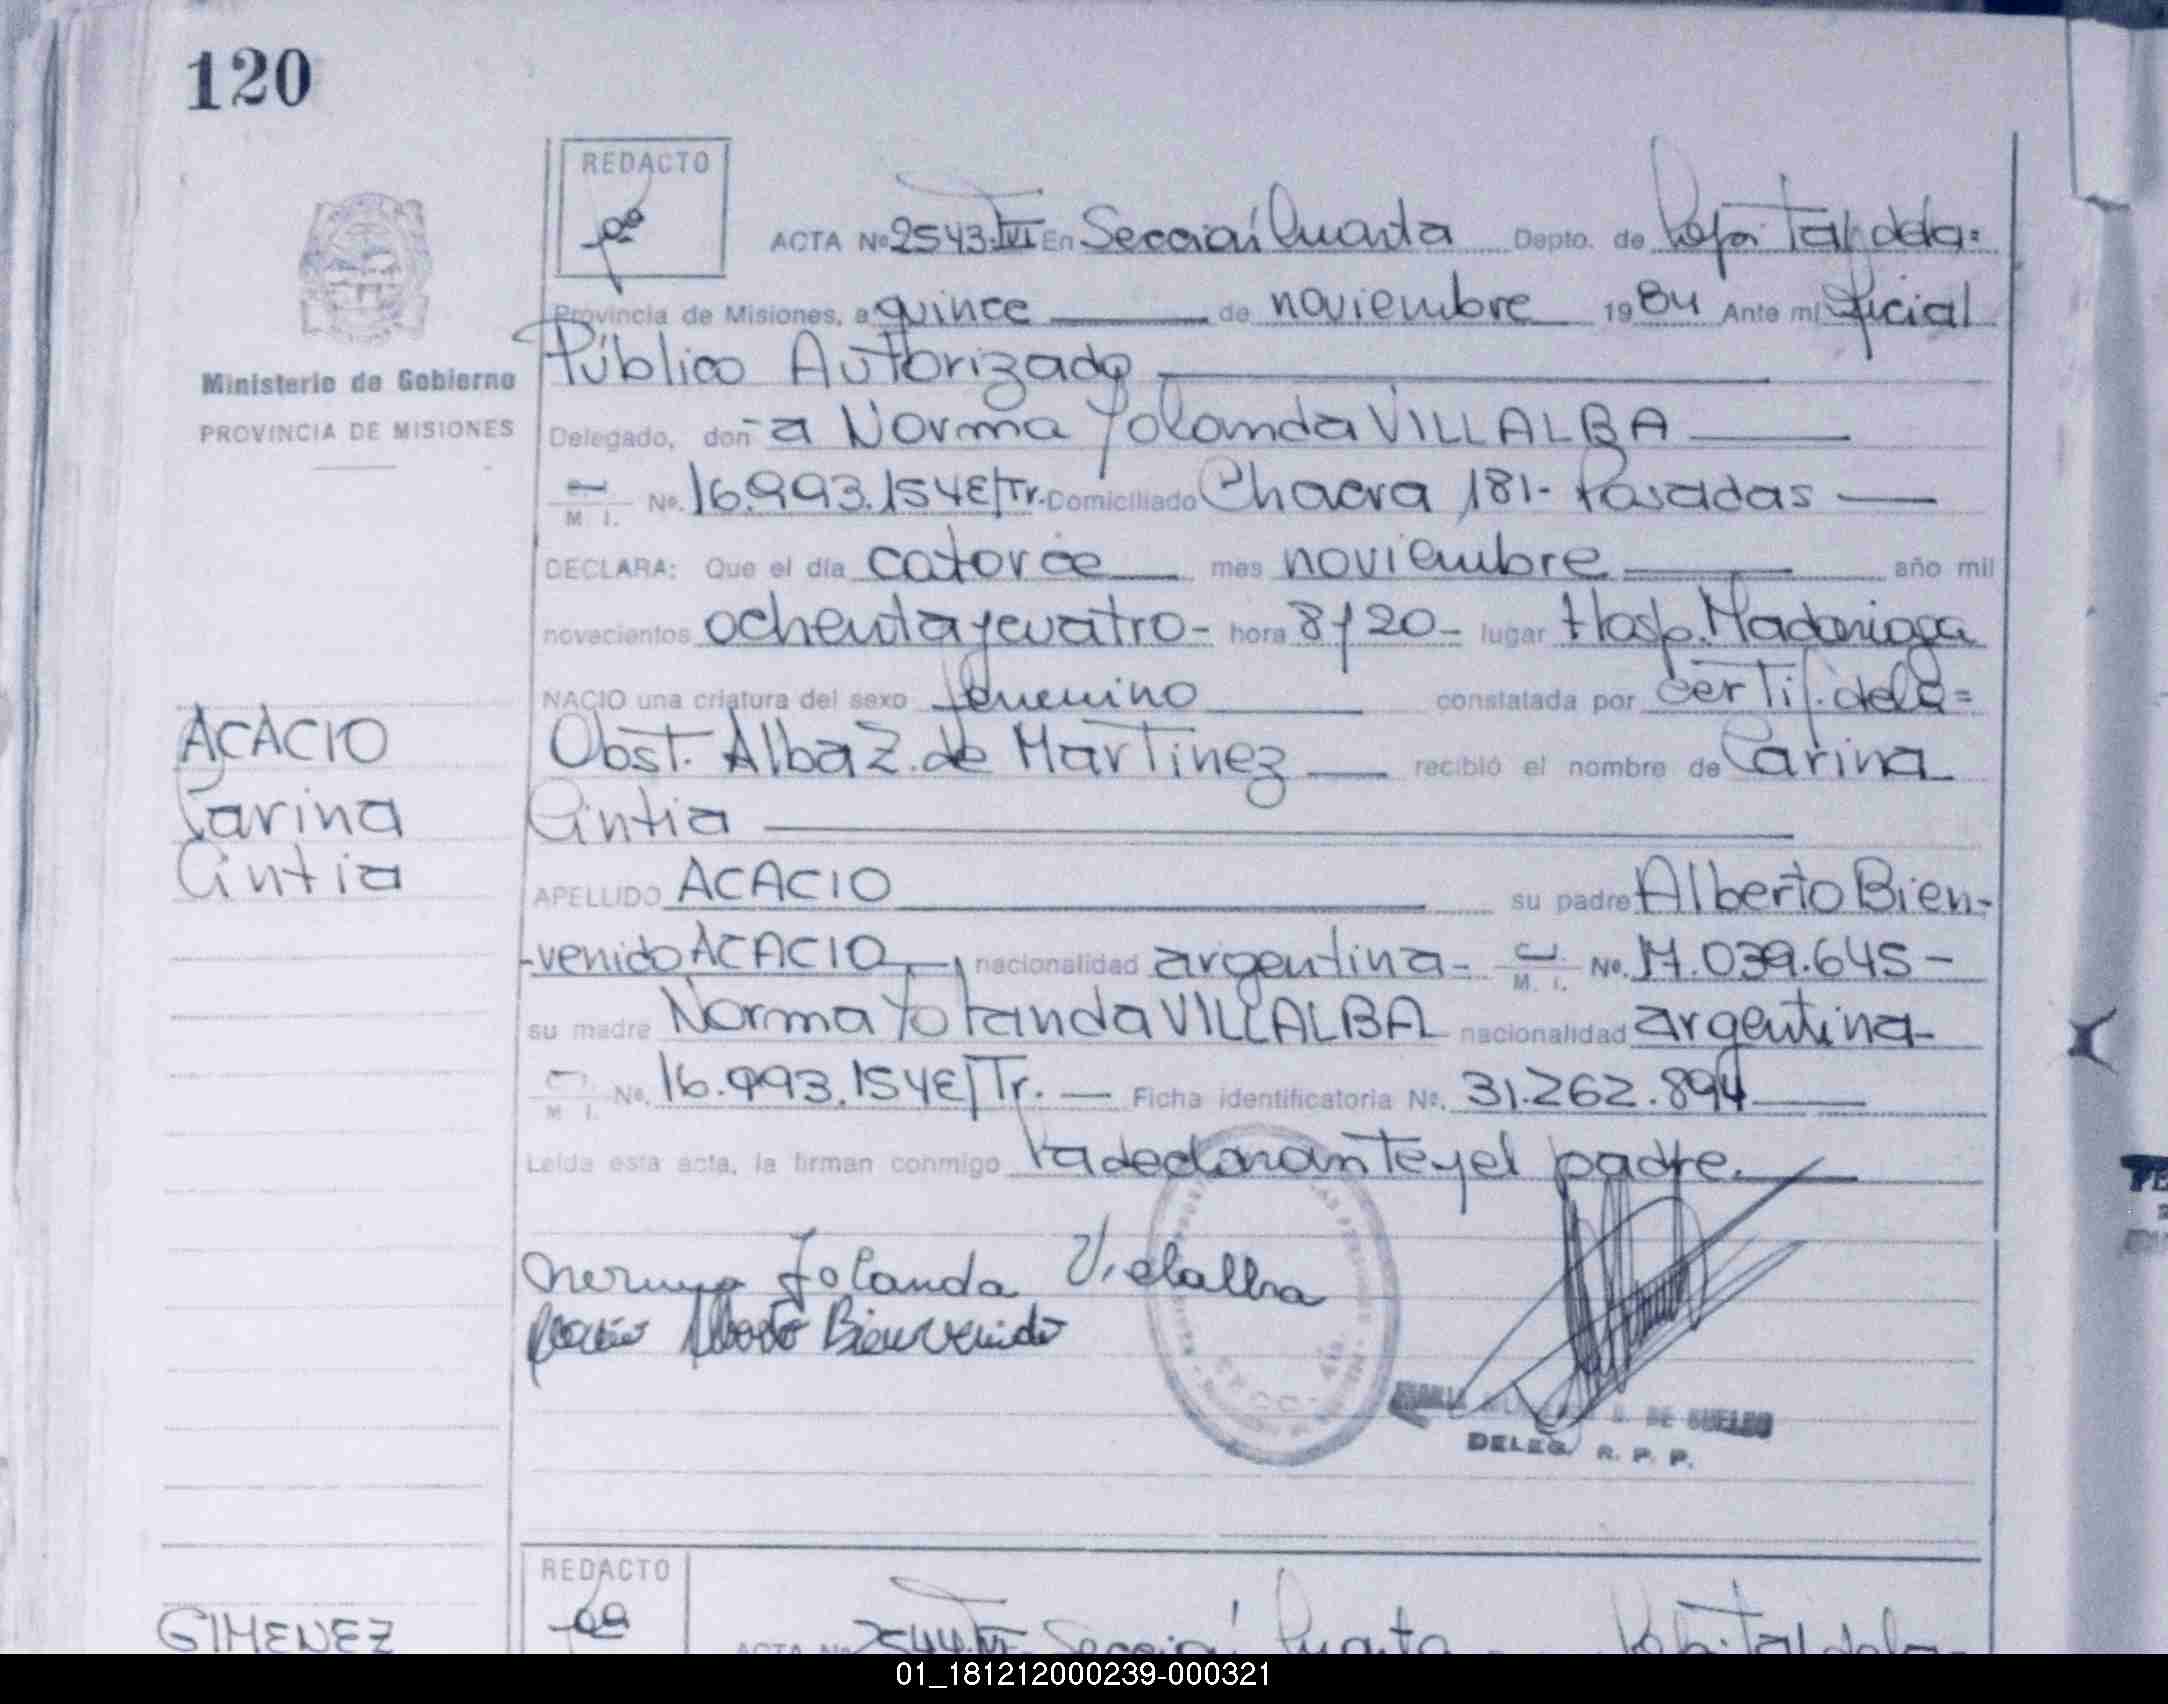 120
REDACTO
ACTA Nº 2543. En Sección Cuarta Depto. de Capital de la=
Provincia de Misiones, a quince de noviembre 1984 Ante mi Oficial
Público Autorizado
Ministerio de Gobierno
PROVINCIA DE MISIONES
Delegado, don-a Norma Yolanda VILLALBA
M I. No. 16.993.154E/Tr. Domiciliado Chacra 181- Posadas
DECLARA: Que el día catorce mes noviembre año mil
novecientos ochentaycuatro- hora 8y20- lugar Hosp. Madariaga
NACIO una criatura del sexo femenino constatada por certif. de la=
Obst. Alba Z. de Martinez recibió el nombre de Carina
Cintia
ACACIO
Carina
Cintia
APELLIDO ACACIO su padre Alberto Bien-
-venido ACACIO, nacionalidad argentina- M. I. No. 17.039.645-
su madre Norma Yolanda VILLALBA nacionalidad argentina-
M I. No. 16.993.154E/Tr. Ficha identificatoria No. 31.262.894
Leída esta acta, la firman conmigo la declarante y el padre.
Norma Yolanda Villalba
Acacio Alberto Bienvenido
DE SUELDO
DELEG. R. P. P.
REDACTO
GIMENEZ
ACTA No 2544. Sección Cuarta Capital de la
01_181212000239-000321